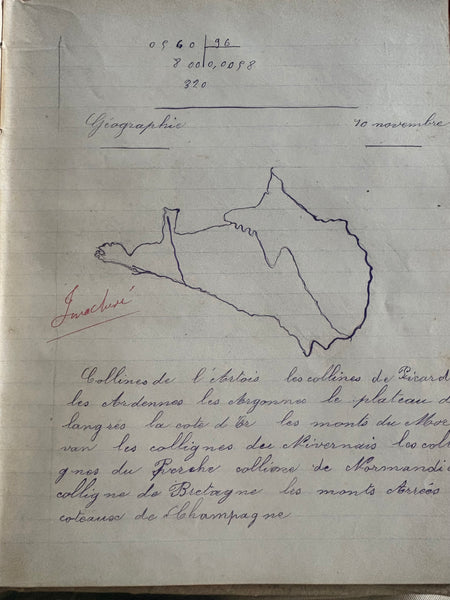 0560 | 96
800 | 0,0058
320
Géographie 10 novembre
Inachevé
Collines de l'Artois les collines de Picard
les Ardennes les Argonnes le plateau d
langres la cote d'Or les monts du Mor
van les collignes du Nivernais les coll
gnes du Perche colline de Normandi
colligne de Bretagne les monts Arrées
coteaux de Champagne